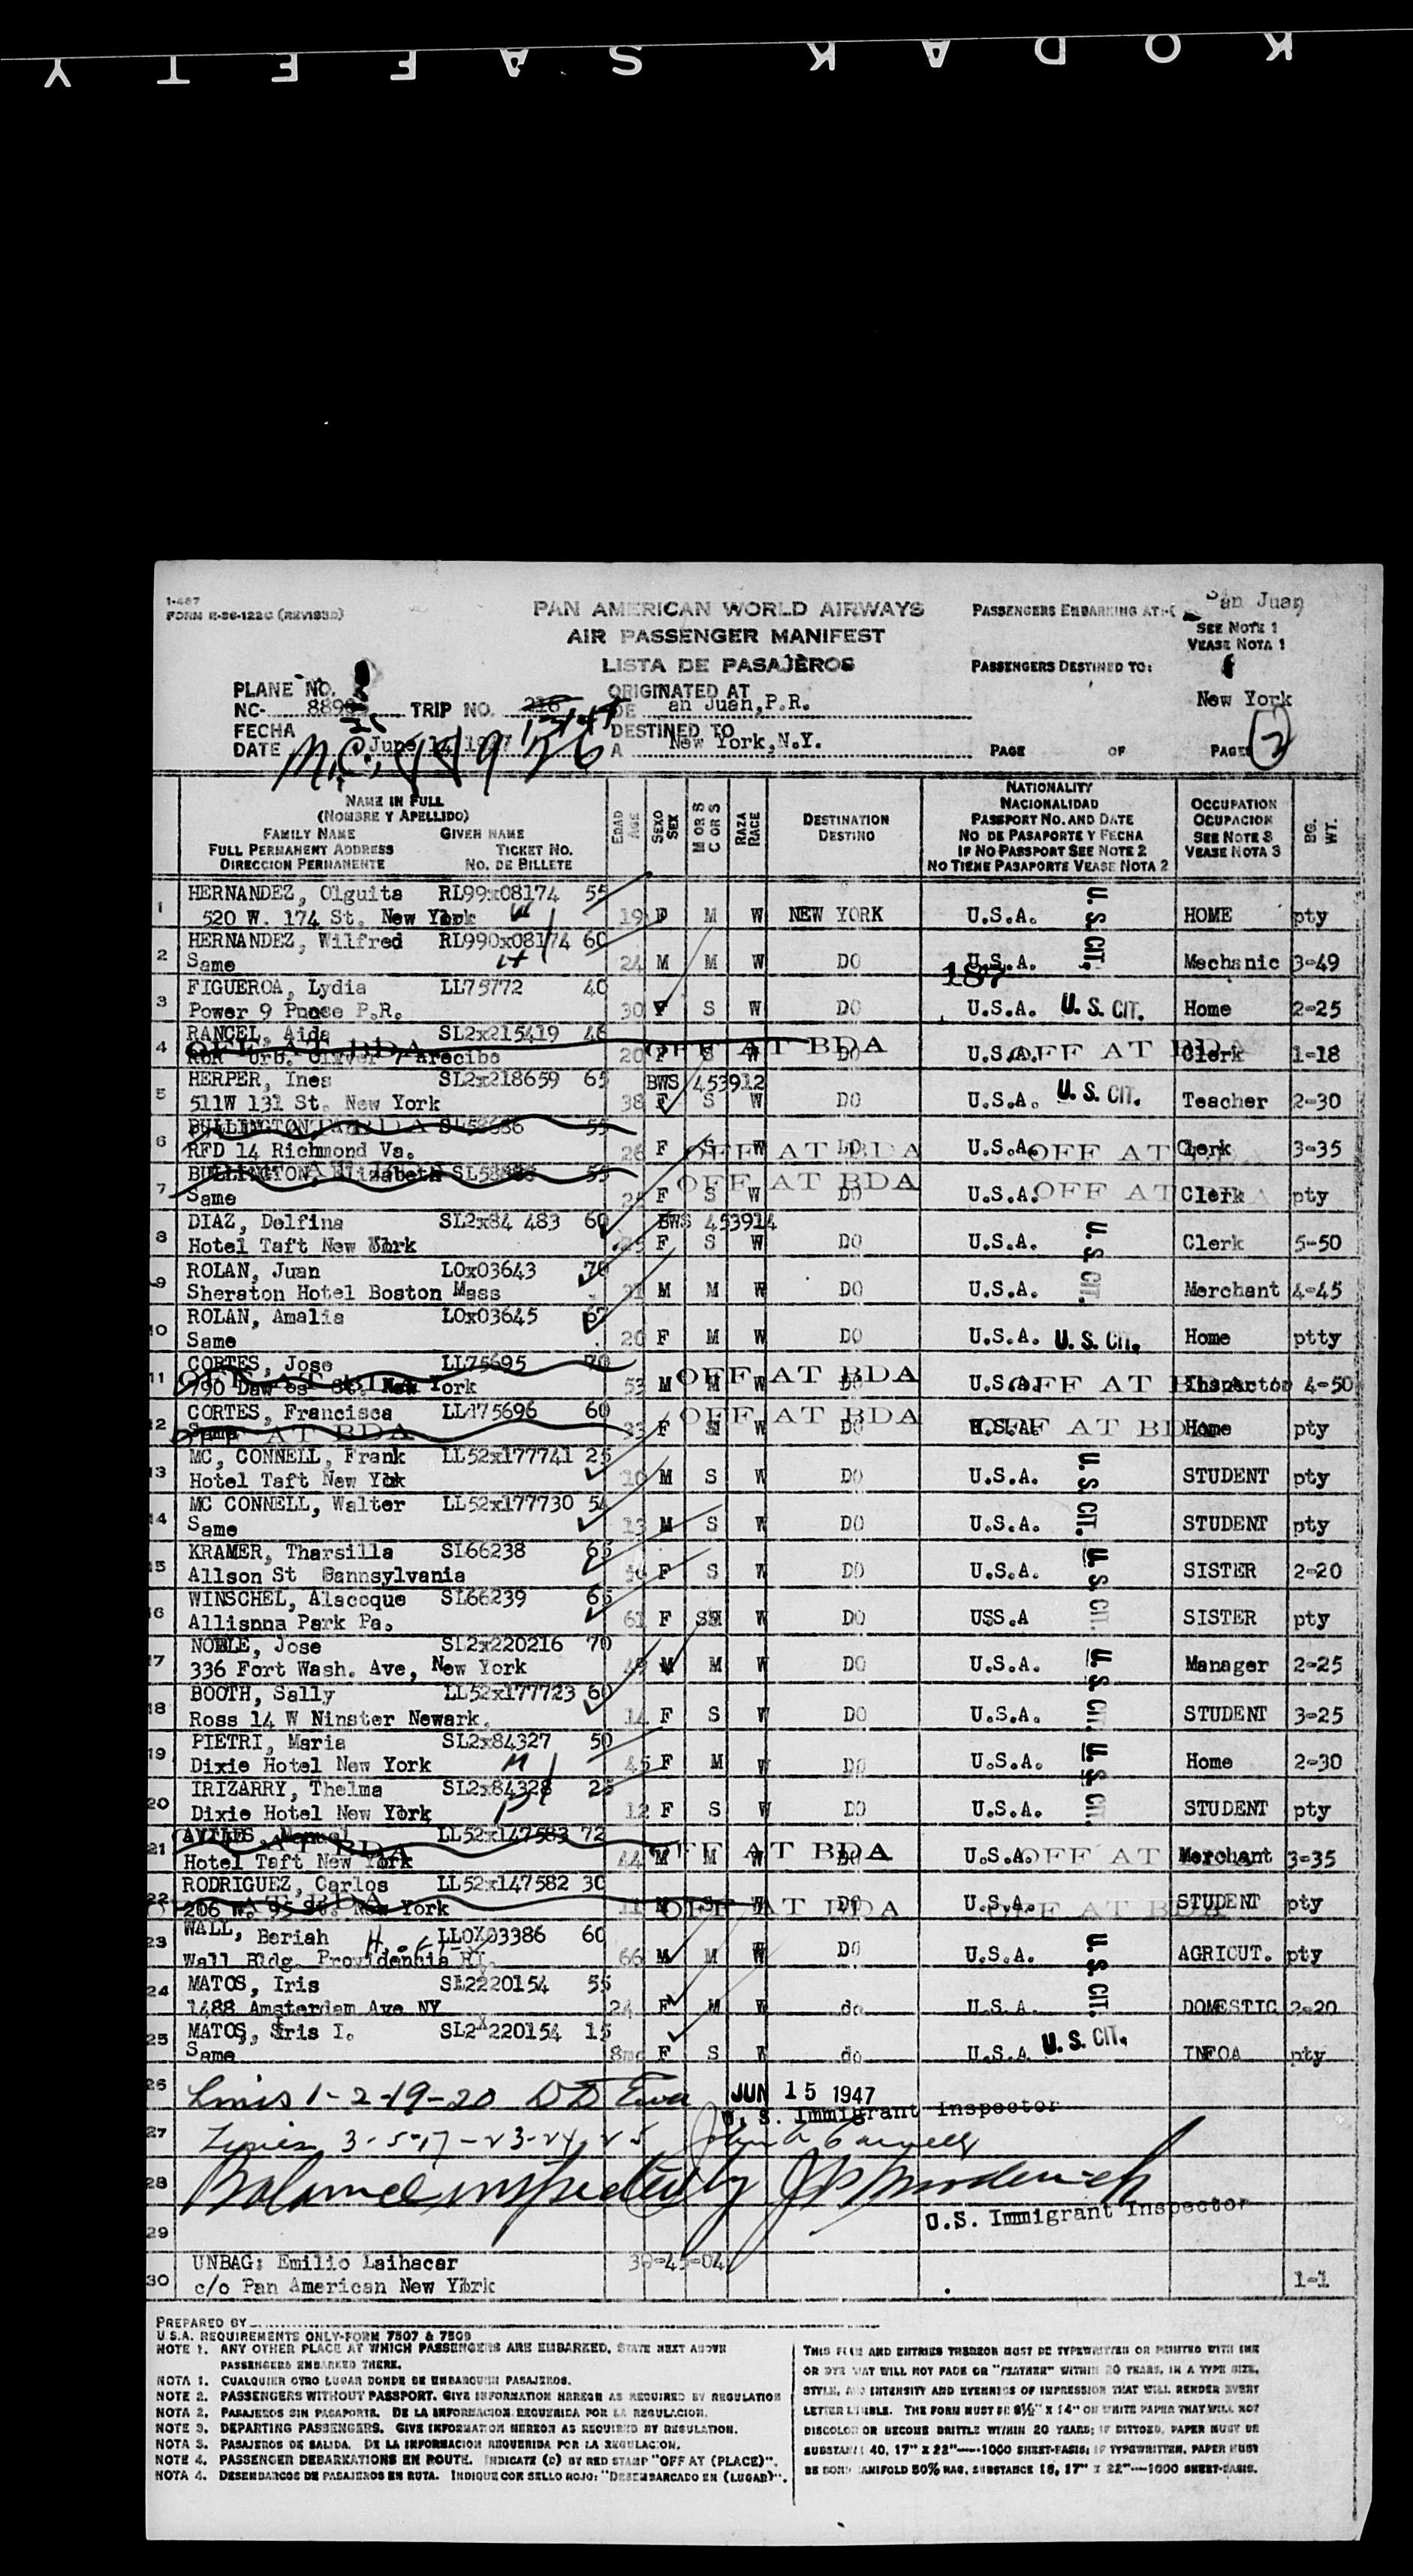 KODAK SAFETY
1-467
FORM R-86-122G (REVISED)
PAN AMERICAN WORLD AIRWAYS
AIR PASSENGER MANIFEST
LISTA DE PASAJEROS
PASSENGERS EMBARKING AT: San Juan
SEE NOTE 1
VEASE NOTA 1
PASSENGERS DESTINED TO:
New York
PLANE NO.
NC- TRIP NO. 226
ORIGINATED AT
DE an Juan, P.R.
FECHA
DATE June 14, 1947
DESTINED TO
A New York, N.Y.
PAGE OF PAGES 2
NAME IN FULL
(NOMBRE Y APELLIDO)
FAMILY NAME GIVEN NAME
FULL PERMANENT ADDRESS TICKET NO.
DIRECCION PERMANENTE NO. DE BILLETE
EDAD AGE
SEXO SEX
M OR S C OR S
RAZA RACE
DESTINATION
DESTINO
NATIONALITY
NACIONALIDAD
PASSPORT NO. AND DATE
NO DE PASAPORTE Y FECHA
IF NO PASSPORT SEE NOTE 2
NO TIENE PASAPORTE VEASE NOTA 2
OCCUPATION
OCUPACION
SEE NOTE 3
VEASE NOTA 3
BG. WT.
1 HERNANDEZ, Olguita RL99x08174 55
520 W. 174 St. New York 19 F M W NEW YORK U.S.A. U.S. CIT. HOME pty
2 HERNANDEZ, Wilfred RL990x08174 60
Same 24 M M W DO U.S.A. Mechanic 3-49
187
3 FIGUEROA, Lydia LL75772 40
Power 9 P.R. 30 F S W DO U.S.A. U.S. CIT. Home 2-25
4 RANGEL, Aida SL2x215419 46
Urb. Oliver 7 Arecibo 20 F S W DO U.S.A. Clerk 1-18
OFF AT BDA OFF AT BDA OFF AT BDA
5 HERPER, Ines SL2x218659 65 BWS 453912
511W 131 St. New York 38 F S W DO U.S.A. U.S. CIT. Teacher 2-30
6 BULLINGTON, 55
RFD 14 Richmond Va. 26 F S W DO U.S.A. Clerk 3-35
OFF AT BDA OFF AT BDA
7 BULLINGTON, Elizabeth 55
Same 25 F S W DO U.S.A. Clerk pty
OFF AT BDA OFF AT BDA
8 DIAZ, Delfina SL2x84 483 60 BWS 453914
Hotel Taft New York F S W DO U.S.A. U.S. CIT. Clerk 5-50
9 ROLAN, Juan LOx03643 70
Sheraton Hotel Boston Mass M M W DO U.S.A. Merchant 4-45
10 ROLAN, Amalia LOx03645
Same 20 F M W DO U.S.A. U.S. CIT. Home ptty
11 CORTES, Jose LL75695 70
790 St. New York 53 M M W DO U.S.A. Inspector 4-50
OFF AT BDA OFF AT BDA
12 CORTES, Francisca LL175696 60
Same 23 F M W DO U.S.A. Home pty
OFF AT BDA OFF AT BDA OFF AT BDA
13 MC, CONNELL, Frank LL52x177741 25
Hotel Taft New York 10 M S W DO U.S.A. U.S. CIT. STUDENT pty
14 MC CONNELL, Walter LL52x177730 54
Same 13 M S W DO U.S.A. STUDENT pty
15 KRAMER, Tharsilla SL66238 65
Allson St Bannsylvania F S W DO U.S.A. U.S. CIT. SISTER 2-20
16 WINSCHEL, Alacoque SL66239 65
Allisnna Park Pa. 61 F W DO USS.A SISTER pty
17 NOBLE, Jose SL2x220216 70
336 Fort Wash. Ave, New York 49 M M W DO U.S.A. U.S. CIT. Manager 2-25
18 BOOTH, Sally LL52x177723 60
Ross 14 W Ninster Newark. 14 F S W DO U.S.A. STUDENT 3-25
19 PIETRI, Maria SL2x84327 50
Dixie Hotel New York 45 F M W DO U.S.A. U.S. CIT. Home 2-30
20 IRIZARRY, Thelma SL2x84328 25
Dixie Hotel New York 12 F S W DO U.S.A. STUDENT pty
21 AVILES, Manuel LL52x147583 72
Hotel Taft New York 44 M M W DO U.S.A. Merchant 3-35
OFF AT BDA OFF AT BDA
22 RODRIGUEZ, Carlos LL52x147582 30
206 W. 95 St. New York 11 M S W DO U.S.A. STUDENT pty
OFF AT BDA OFF AT BDA OFF AT BDA
23 WALL, Beriah H. LLOX03386 60
Wall Bldg. Providencia RI. 66 M M W DO U.S.A. U.S. CIT. AGRICUT. pty
24 MATOS, Iris SL2220154 55
1488 Amsterdam Ave NY 24 F M W do U.S.A. DOMESTIC 2-20
25 MATOS, Iris I. SL2x220154 15
Same 8mo F S W do U.S.A U.S. CIT. pty
26 Lines 1-2-19-20 JUN 15 1947
U. S. Immigrant Inspector
27 Lines 3-5-17-23-24-25
28 Balance inspected by
U.S. Immigrant Inspector
29
30 UNBAG: Emilio Laihacar 36-45-04
c/o Pan American New York 1-1
PREPARED BY
U.S.A. REQUIREMENTS ONLY-FORM 7507 & 7509
NOTE 1. ANY OTHER PLACE AT WHICH PASSENGERS ARE EMBARKED, STATE NEXT ABOVE
PASSENGERS EMBARKED THERE.
NOTA 1. CUALQUIER OTRO LUGAR DONDE SE EMBARQUEN PASAJEROS.
NOTE 2. PASSENGERS WITHOUT PASSPORT. GIVE INFORMATION HEREON AS REQUIRED BY REGULATION
NOTA 2. PASAJEROS SIN PASAPORTE. DE LA INFORMACION REQUERIDA POR LA REGULACION.
NOTE 3. DEPARTING PASSENGERS. GIVE INFORMATION HEREON AS REQUIRED BY REGULATION.
NOTA 3. PASAJEROS DE SALIDA. DE LA INFORMACION REQUERIDA POR LA REGULACION.
NOTE 4. PASSENGER DEBARKATIONS EN ROUTE. INDICATE (D) BY RED STAMP "OFF AT (PLACE)".
NOTA 4. DESEMBARCOS DE PASAJEROS EN RUTA. INDIQUE CON SELLO ROJO: "DESEMBARCADO EN (LUGAR)".
THIS FORM AND ENTRIES THEREON MUST BE TYPEWRITTEN OR PRINTED WITH INK
OR DYE THAT WILL NOT FADE OR "FEATHER" WITHIN 20 YEARS, IN A TYPE SIZE,
STYLE, AND INTENSITY AND EVENNESS OF IMPRESSION THAT WILL RENDER EVERY
LETTER LEGIBLE. THE FORM MUST BE 8½" X 14" ON WHITE PAPER THAT WILL NOT
DISCOLOR OR BECOME BRITTLE WITHIN 20 YEARS; IF DITTOED, PAPER MUST BE
SUBSTANCE 40, 17" X 22"----1000 SHEET-BASIS; IF TYPEWRITTEN, PAPER MUST
BE BOND MANIFOLD 50% RAG, SUBSTANCE 16, 17" X 22"----1000 SHEET-BASIS.